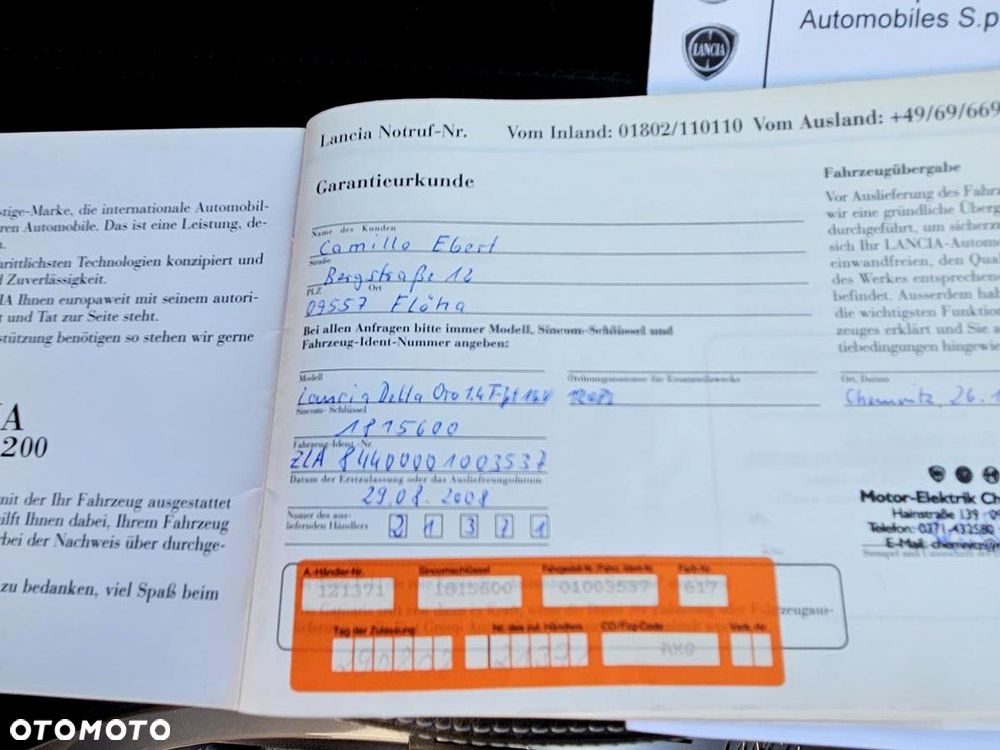 Automobiles S.p
LANCIA
Lancia Notruf-Nr. Vom Inland: 01802/110110 Vom Ausland: +49/69/669
Garantieurkunde
Name des Kunden
Camillo Ebert
Straße
Bergstraße 12
PLZ Ort
09557 Flöha
Bei allen Anfragen bitte immer Modell, Sincom-Schlüssel und
Fahrzeug-Ident-Nummer angeben:
Modell
Lancia Delta Oro 1.4 T-Jet 16V
Ordnungsnummer für Ersatzteilzwecke
Sincom-Schlüssel
1815600
Fahrzeug-Ident.-Nr.
ZLA 84400001003537
Datum der Erstzulassung oder das Auslieferungsdatum
29.08.2008
Nummer des aus-
liefernden Händlers
2 1 3 7 1
A.-Händler-Nr. Sincomschlüssel
121371 1815600 01003537 617
Tag der Zulassung Nr. des zul. Händlers CD/Fzg-Code Verk.-Nr.
290802 21371
Fahrzeugübergabe
Vor Auslieferung des Fahrz
wir eine gründliche Überg
durchgeführt, um sicherzu
sich Ihr LANCIA-Autom
einwandfreien, den Qual
des Werkes entsprechende
befindet. Ausserdem hab
die wichtigsten Funktion
zeuges erklärt und Sie a
tiebedingungen hingewie
Ort, Datum
Chemnitz, 26.1
Motor-Elektrik Ch
Hainstraße 139 · 09
Telefon: 0371-432580
E-Mail: chemnitz@m
stige-Marke, die internationale Automobil-
ren Automobile. Das ist eine Leistung, de-
n.
rittlichsten Technologien konzipiert und
d Zuverlässigkeit.
IA Ihnen europaweit mit seinem autori-
t und Tat zur Seite steht.
stützung benötigen so stehen wir gerne
A
200
mit der Ihr Fahrzeug ausgestattet
hilft Ihnen dabei, Ihrem Fahrzeug
rbei der Nachweis über durchge-
zu bedanken, viel Spaß beim
OTOMOTO